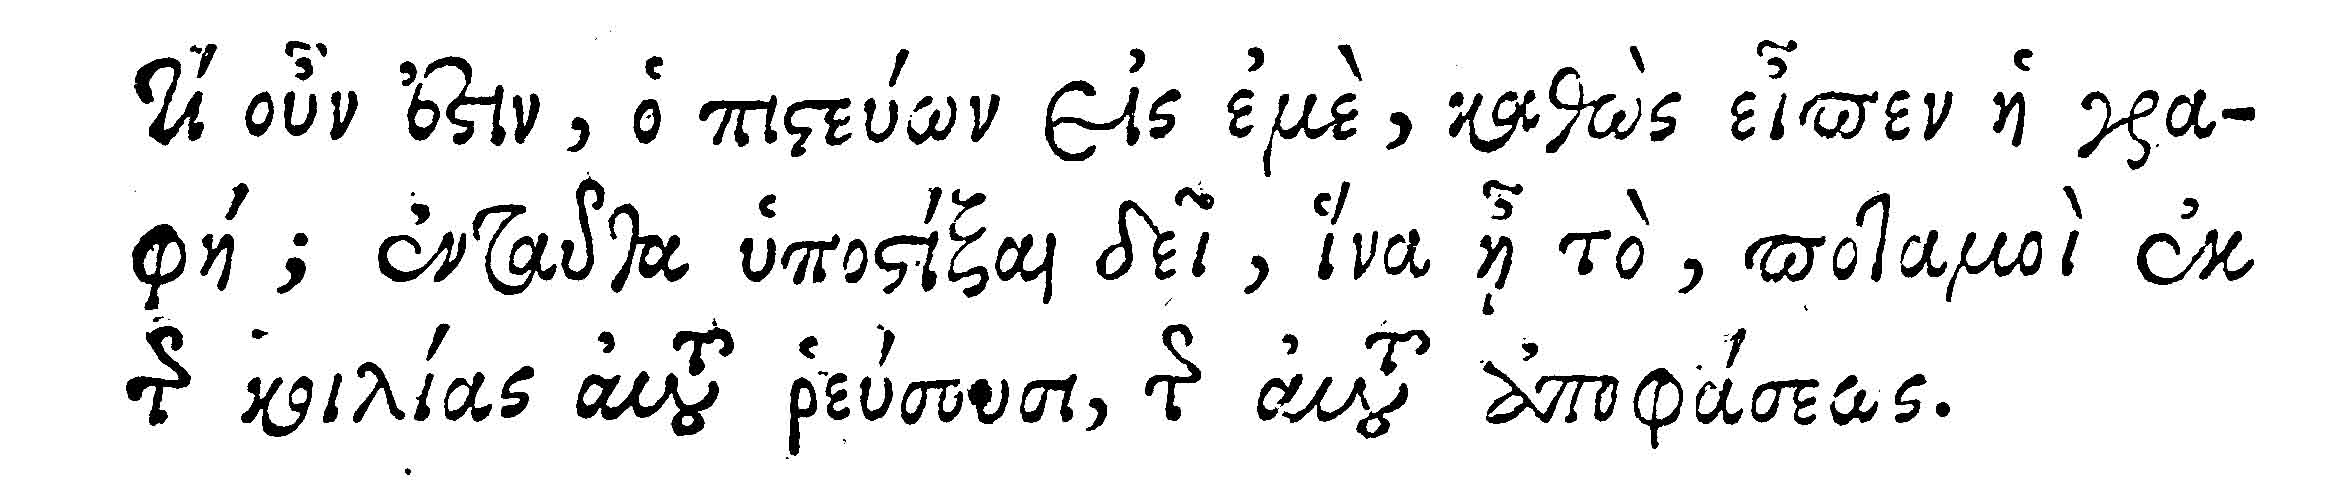 Τί οὖν ἐστιν, ὁ πιστεύων εἰς ἐμὲ, καθὼς εἶπεν ἡ γρα-
φή; ἐνταῦθα ὑποστίξαι δεῖ, ἵνα ᾖ τὸ, ποταμοὶ ἐκ
τῆς κοιλίας αὐτοῦ ῥεύσουσι, τῆς αὐτοῦ ἀποφάσεως.